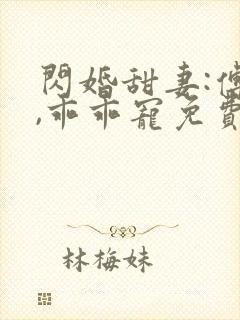 閃婚甜妻:傅
,乖乖寵免費
林梅妹